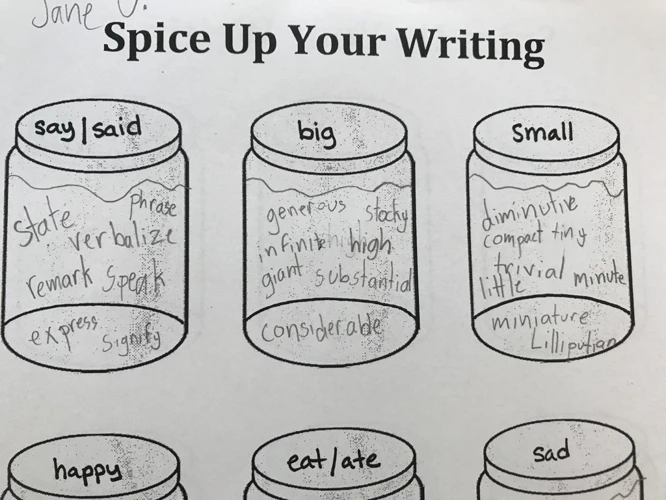 Jane U.
Spice Up Your Writing
say/said
big
small
Phrase
State
verbalize
remark Speak
express
Signify
generous stocky
infinite high
giant substantial
considerable
diminutive
compact tiny
trivial
little minute
miniature
Lilliputian
happy
eat/ate
sad